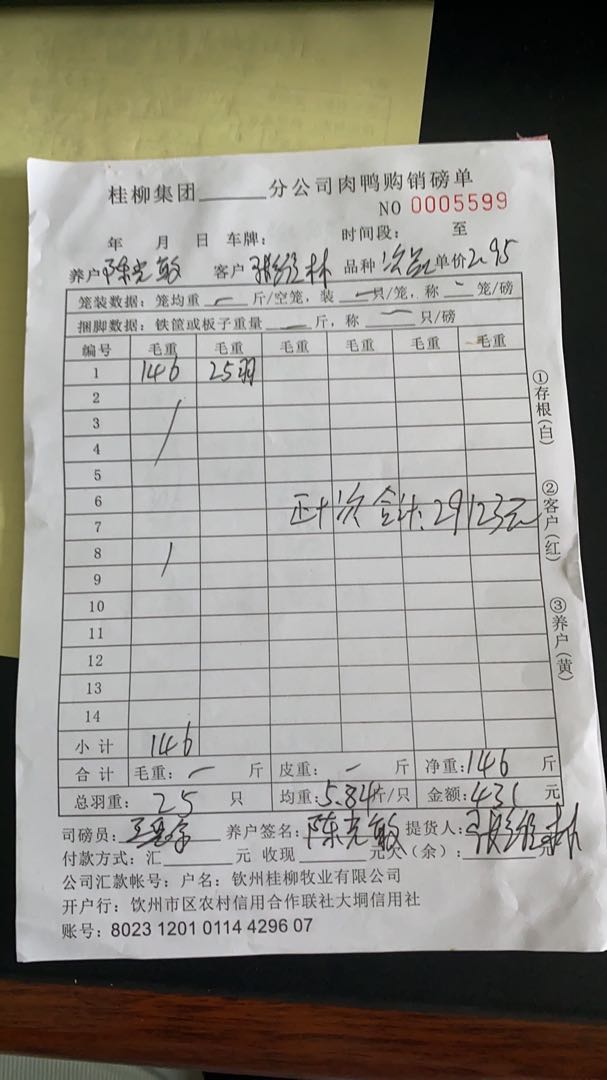 桂柳集团______分公司肉鸭购销磅单
NO 0005599
年 月 日 车牌: 时间段: 至
养户 陈光敏 客户 林 品种 次 单价 2.95
笼装数据: 笼均重 — 斤/空笼, 装 — 只/笼, 称 — 笼/磅
捆脚数据: 铁筐或板子重量 — 斤, 称 — 只/磅
编号 毛重 毛重 毛重 毛重 毛重 毛重
1 146 25羽
2
3
4
5
6
7
正+次 合计: 29123元
8
9
10
11
12
13
14
小计 146
合计 毛重: — 斤 皮重: — 斤 净重: 146 斤
总羽重: 25 只 均重: 5.84斤/只 金额: 431 元
司磅员: 王 养户签名: 陈光敏 提货人: 林
付款方式: 汇______元 收现______元欠(余):______元
公司汇款帐号: 户名: 钦州桂柳牧业有限公司
开户行: 钦州市区农村信用合作联社大垌信用社
账号: 8023 1201 0114 4296 07
①存根(白)
②客户(红)
③养户(黄)